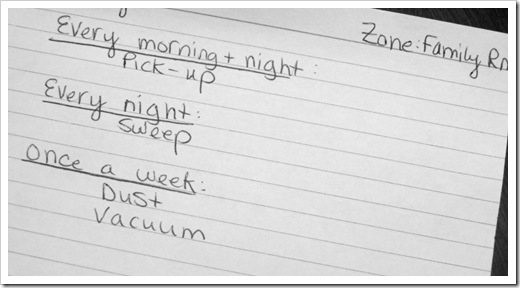 Zone: Family Rm
Every morning + night:
Pick-up
Every night:
Sweep
Once a week:
Dust
Vacuum